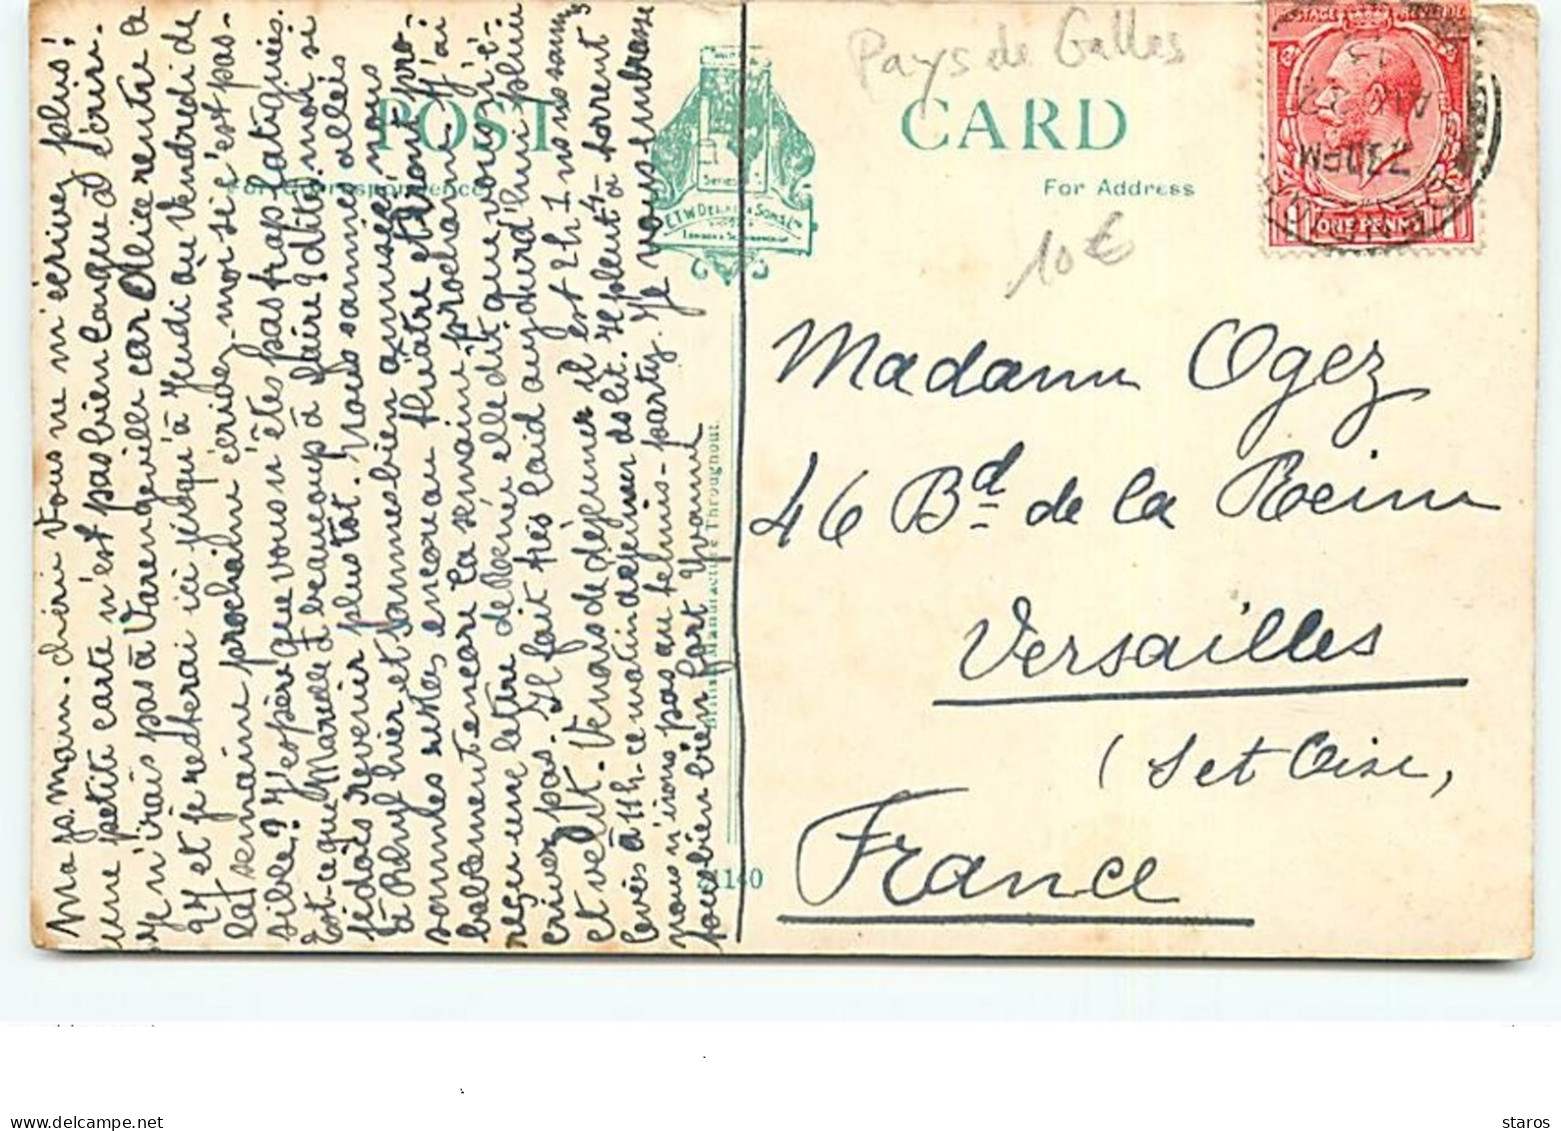 Pays de Galles
POST CARD
For Correspondence
For Address
E.T.W. DENNIS & SONS LTD
LONDON & SCARBOROUGH
POSTAGE REVENUE
ONE PENNY
7 30 PM
10€
Madame Ogez
46 Bd de la Reine
Versailles
(S et Oise)
France
British Manufacture Throughout
Ma p. mam. chéri vous ne m'écrivez plus;
une petite carte n'est pas bien longue à écrire.
Je n'irais pas à Varengeville car Alice rentre le
24 et je resterai ici jusqu'à Jeudi ou Vendredi de
la semaine prochaine écrivez-moi si c'est pas-
sible? J'espère que vous n'êtes pas trop fatiguées.
Est-ce que Marcelle a beaucoup à faire? dites moi si
je dois revenir plus tôt. Nous sommes allées
à Rhyl hier et sommes bien amusées nous
sommes restes encore au théâtre et iront pro-
bablement encore la semaine prochaine. J'ai
reçu une lettre de Renée elle dit que vous n'é-
crivez pas. Il fait très laid aujourd'hui pluie
et vent. Venons de déjeuner il est 2h 1/4 nous sommes
levées à 11h ce matin déjeuner au lit. Il pleut à torrent
nous n'irons pas au tennis-party. Je vous embrasse
tous bien bien fort Yvonne
staros